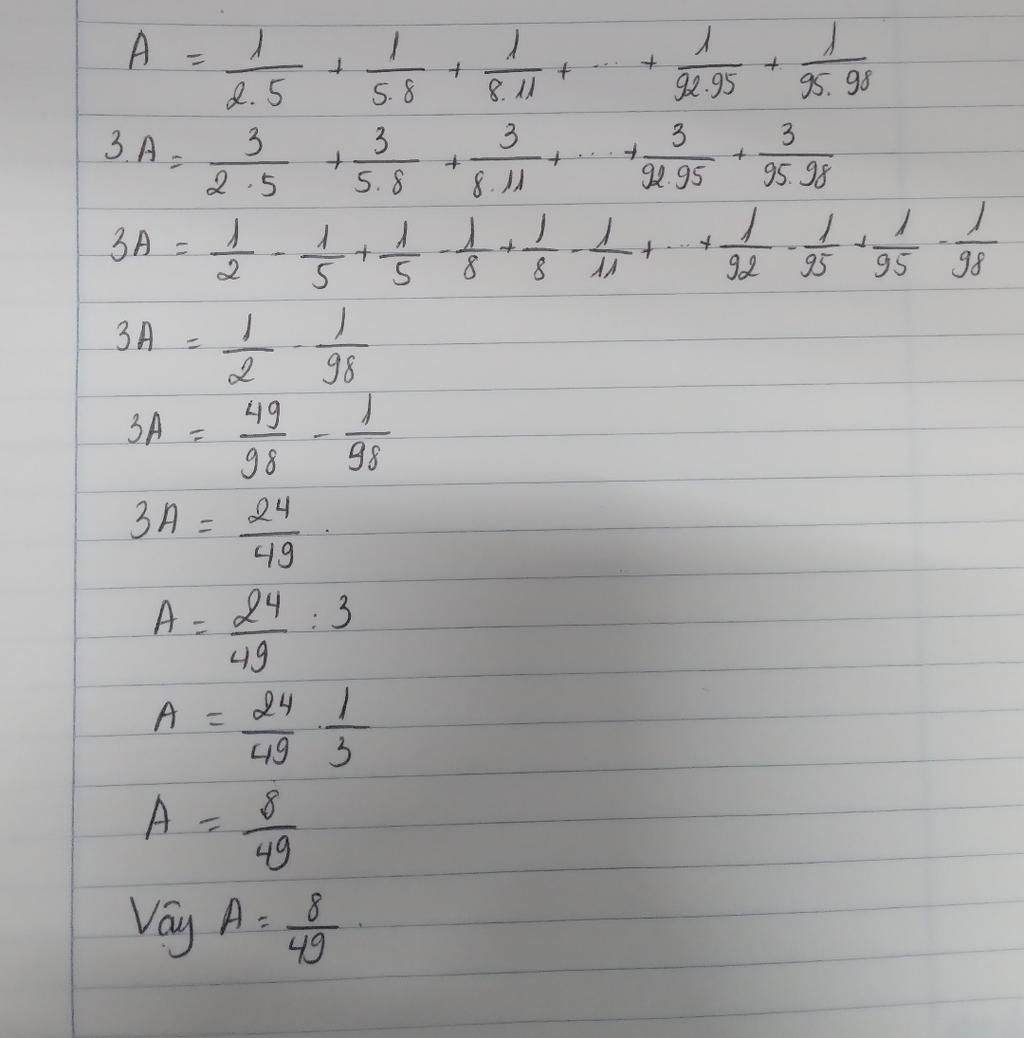 A = 1/2.5 + 1/5.8 + 1/8.11 + ... + 1/92.95 + 1/95.98
3.A = 3/2.5 + 3/5.8 + 3/8.11 + ... + 3/92.95 + 3/95.98
3A = 1/2 - 1/5 + 1/5 - 1/8 + 1/8 - 1/11 + ... + 1/92 - 1/95 + 1/95 - 1/98
3A = 1/2 - 1/98
3A = 49/98 - 1/98
3A = 24/49.
A = 24/49 : 3
A = 24/49 . 1/3
A = 8/49
Vậy A = 8/49.